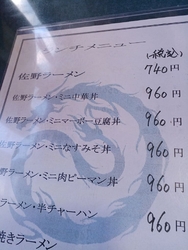 ランチメニュー
(税込)
佐野ラーメン 740円
佐野ラーメン・ミニ中華丼 960円
佐野ラーメン・ミニマーボー豆腐丼 960円
佐野ラーメン・ミニなすみそ丼 960円
佐野ラーメン・ミニ肉ピーマン丼 960円
ラーメン・半チャーハン 960円
焼きラーメン